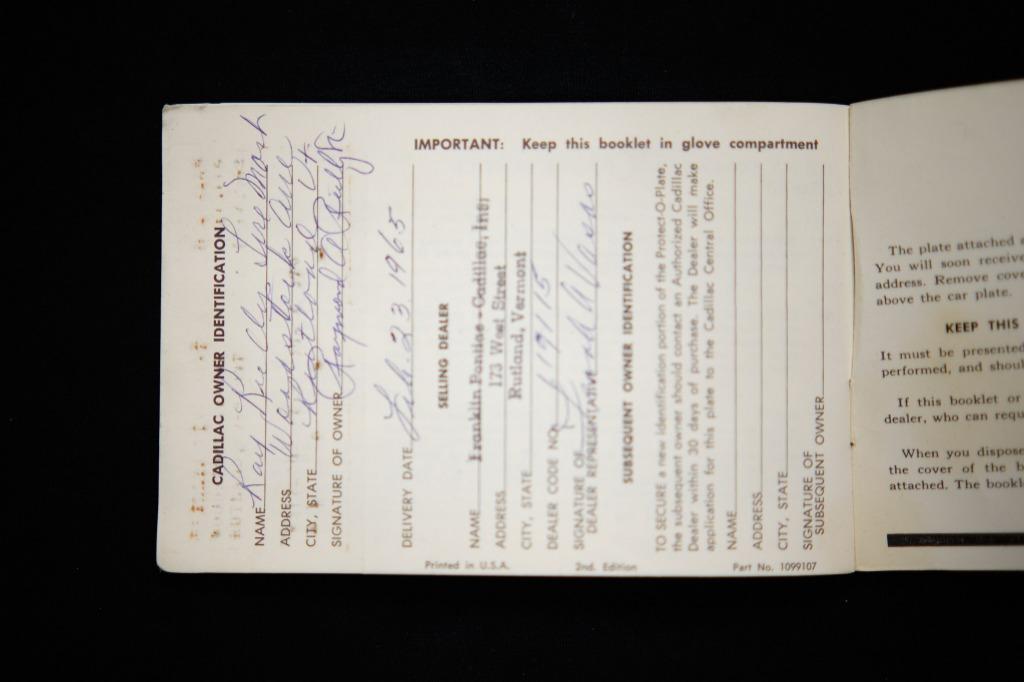 IMPORTANT: Keep this booklet in glove compartment
CADILLAC OWNER IDENTIFICATION
NAME Ray Rielly
ADDRESS Woodstock Ave
CITY, STATE Rutland Vt
SIGNATURE OF OWNER Raymond
DELIVERY DATE Feb. 23 1965
SELLING DEALER
NAME Franklin Pontiac - Cadillac, Inc.
ADDRESS 173 West Street
CITY, STATE Rutland, Vermont
DEALER CODE NO. 19115
SIGNATURE OF
DEALER REPRESENTATIVE
SUBSEQUENT OWNER IDENTIFICATION
TO SECURE a new identification portion of the Protect-O-Plate,
the subsequent owner should contact an Authorized Cadillac
Dealer within 30 days of purchase. The Dealer will make
application for this plate to the Cadillac Central Office.
NAME
ADDRESS
CITY, STATE
SIGNATURE OF
SUBSEQUENT OWNER
Printed in U.S.A. 2nd. Edition Part No. 1099107
The plate attached
You will soon receive
address. Remove
above the car plate.
KEEP THIS
It must be presented
performed, and
If this booklet or
dealer, who can
When you
the cover of the
attached. The